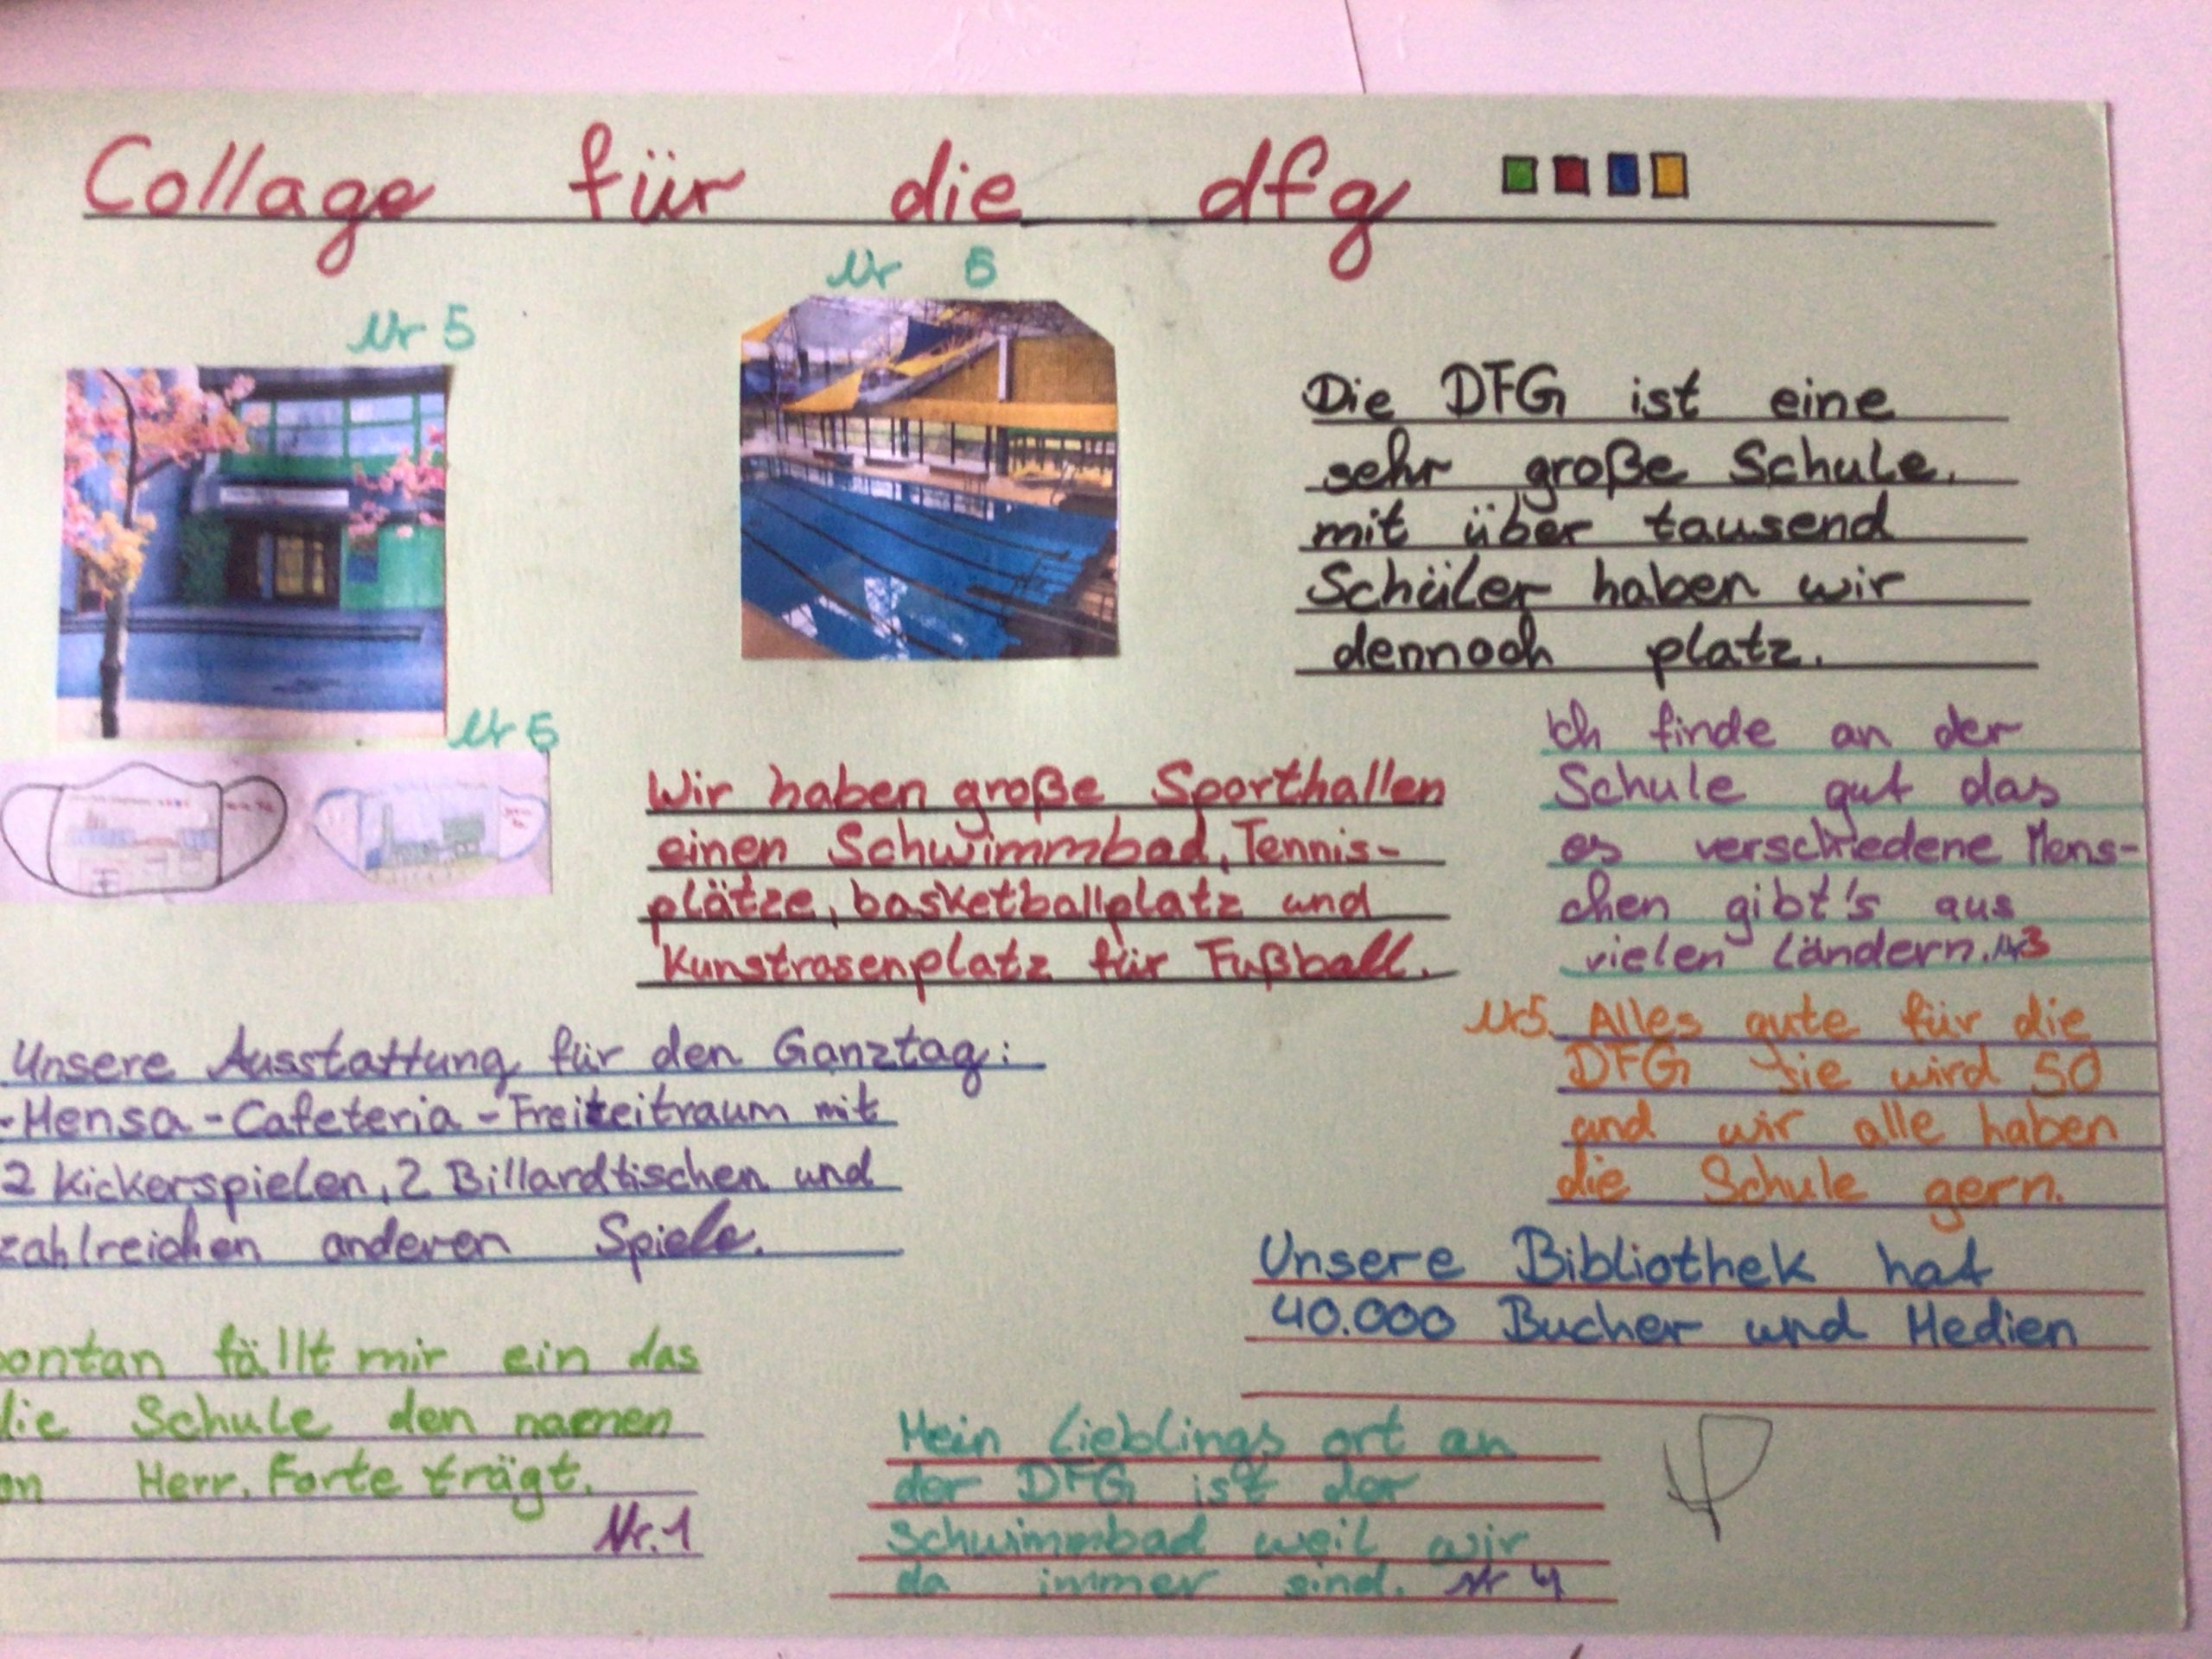 Collage für die dfg
Nr 6
Nr 5
Die DFG ist eine
sehr große Schule.
mit über tausend
Schüler haben wir
dennoch platz.
Nr 6
Wir haben große Sporthallen
einen Schwimmbad, Tennis-
plätze, basketballplatz und
Kunstrasenplatz für Fußball.
Ich finde an der
Schule gut das
es verschiedene Mens-
chen gibt's aus
vielen Ländern. Nr3
Nr5. Alles gute für die
DFG sie wird 50
und wir alle haben
die Schule gern.
Unsere Ausstattung für den Ganztag:
-Mensa - Cafeteria - Freizeitraum mit
2 Kickerspielen, 2 Billardtischen und
zahlreichen anderen Spiele.
Unsere Bibliothek hat
40.000 Bucher und Medien
ontan fällt mir ein das
die Schule den namen
on Herr. Forte trägt.
Nr.1
Mein Lieblings ort an
der DFG ist der
Schwimmbad weil wir
da immer sind. Nr 4